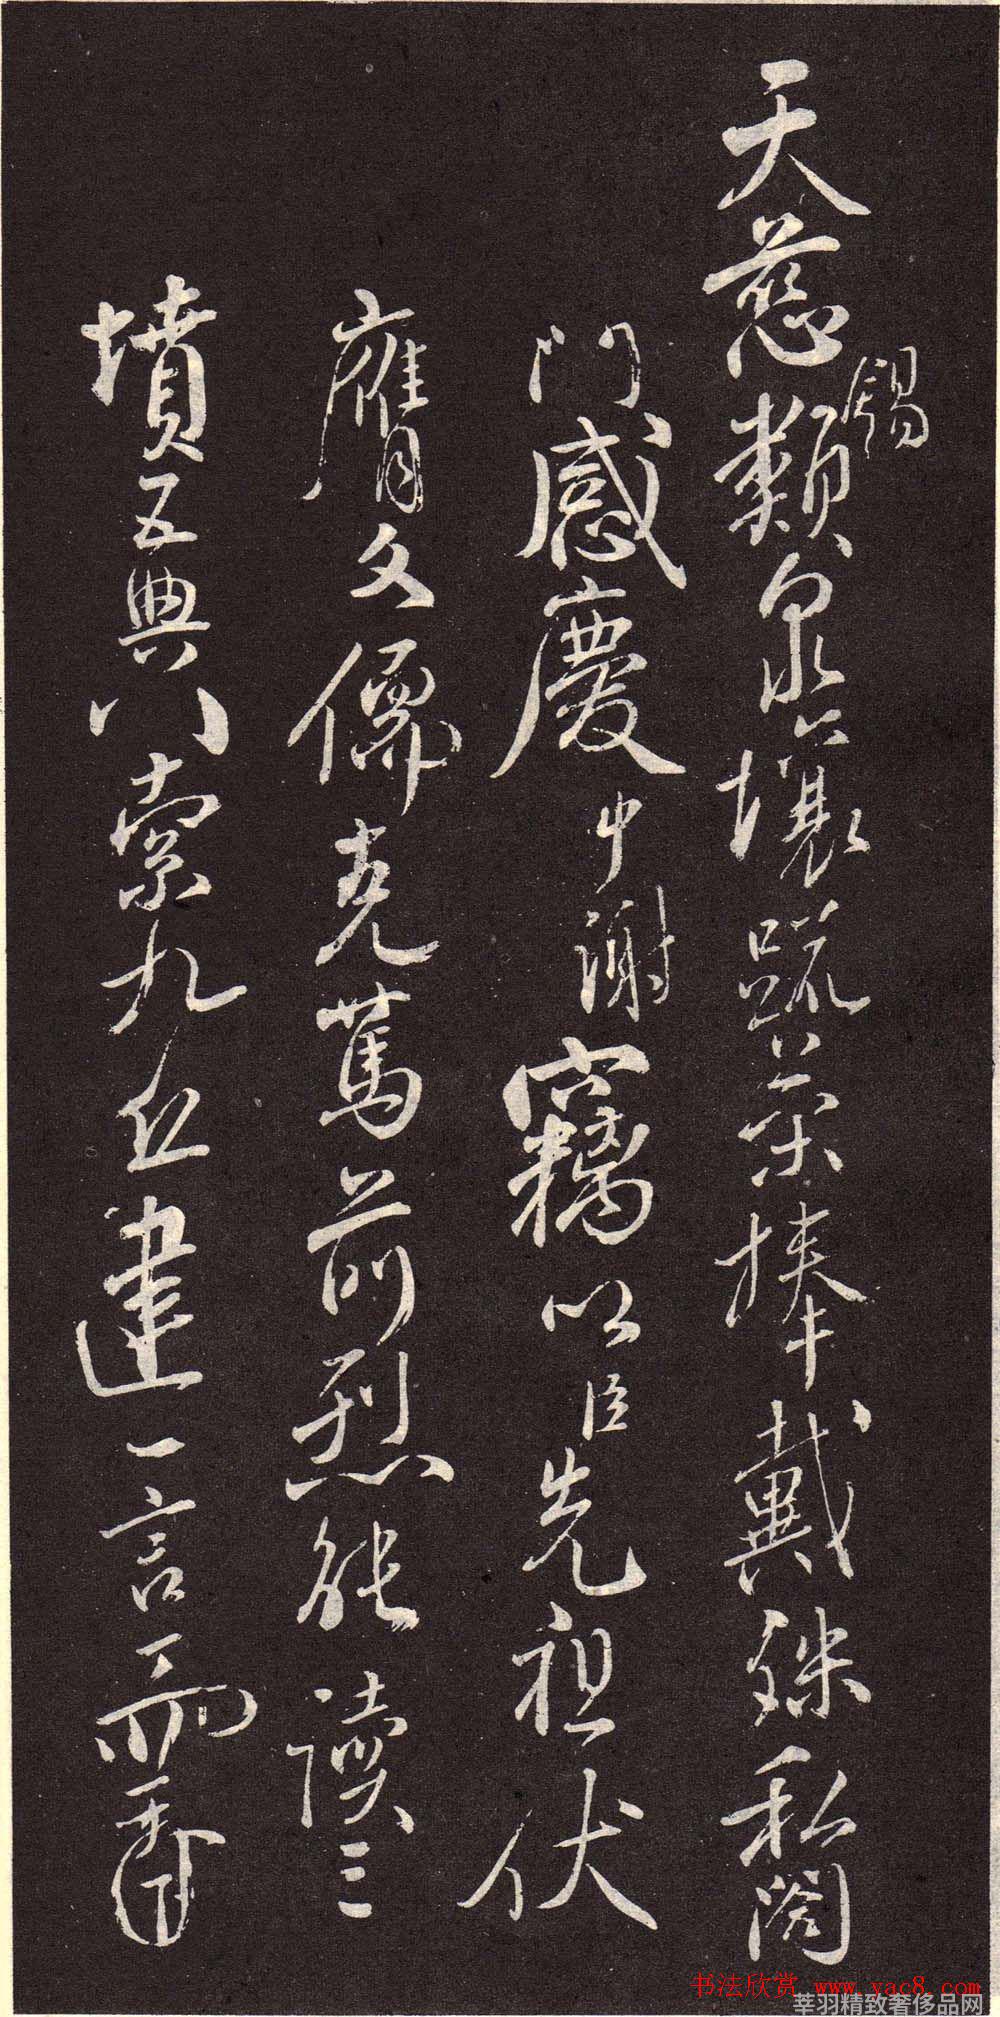 天慈錫類泉壤疏榮捧戴殊私闔
門感慶中謝竊以臣先祖伏
膺文儒克篤前烈能讀三
墳五典八索九丘建一言
书法欣赏 www.yac8.com
莘羽精致奢侈品网